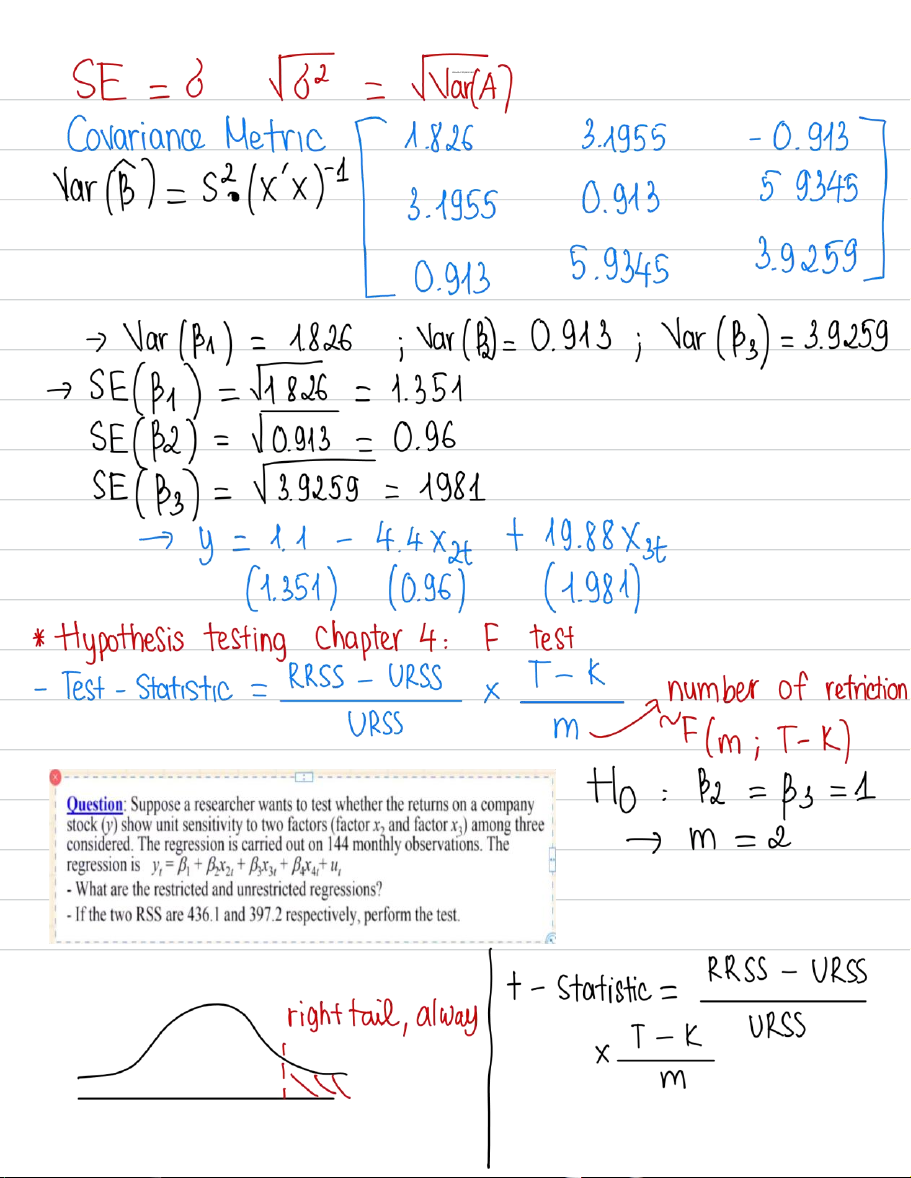 SE = σ √σ² = √Var(A)
Covariance Metric
Var(β̂) = S².(x'x)⁻¹
[ 1.826 3.1955 - 0.913
3.1955 0.913 5 9345
0.913 5.9345 3.9259 ]
→ Var(β1) = 1826 ; Var(β2) = 0.913 ; Var(β3) = 3.9259
→ SE(β1) = √1 826 = 1.351
SE(β2) = √0.913 = 0.96
SE(β3) = √3.9259 = 1981
→ y = 1.1 - 4.4x2t + 19.88x3t
(1.351) (0.96) (1.981)
* Hypothesis testing Chapter 4: F test
- Test - Statistic = (RRSS - URSS)/URSS x (T - K)/m
number of retriction
~F(m ; T - K)
Question: Suppose a researcher wants to test whether the returns on a company
stock (y) show unit sensitivity to two factors (factor x₂ and factor x₃) among three
considered. The regression is carried out on 144 monthly observations. The
regression is yₜ = β₁ + β₂x₂ₜ + β₃x₃ₜ + β₄x₄ₜ + uₜ
- What are the restricted and unrestricted regressions?
- If the two RSS are 436.1 and 397.2 respectively, perform the test.
H0 : β2 = β3 = 1
→ m = 2
right tail, alway
t - Statistic = (RRSS - URSS)/URSS
x (T - K)/m